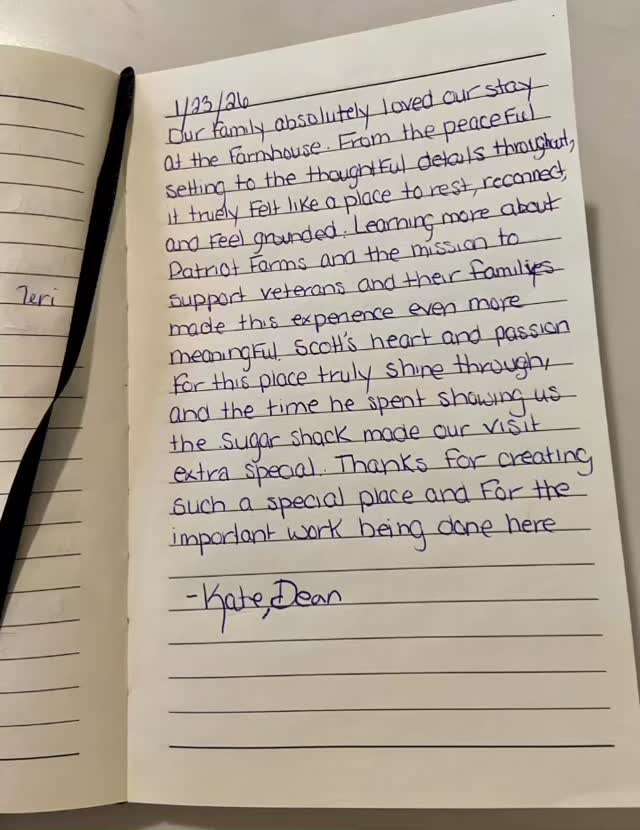 Teri
1/23/26
Our family absolutely loved our stay
at the Farmhouse. From the peaceful
setting to the thoughtful details throughout,
it truely felt like a place to rest, reconnect,
and feel grounded. Learning more about
Patriot Farms and the mission to
support veterans and their families
made this experience even more
meaningful. Scott's heart and passion
for this place truly shine through,
and the time he spent showing us
the sugar shack made our visit
extra special. Thanks for creating
such a special place and for the
important work being done here
-Kate, Dean